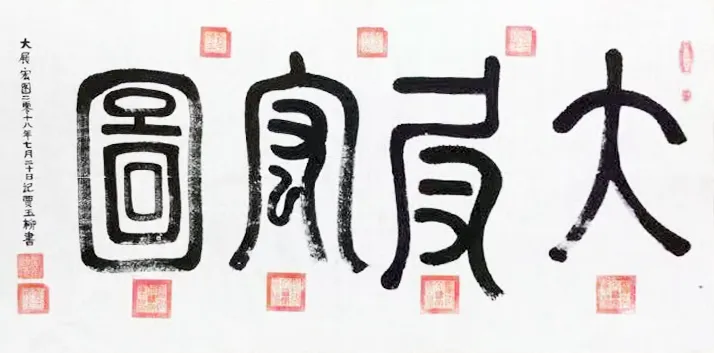 大展宏圖
大展宏图二零十八年七月二十日記賈玉柳書